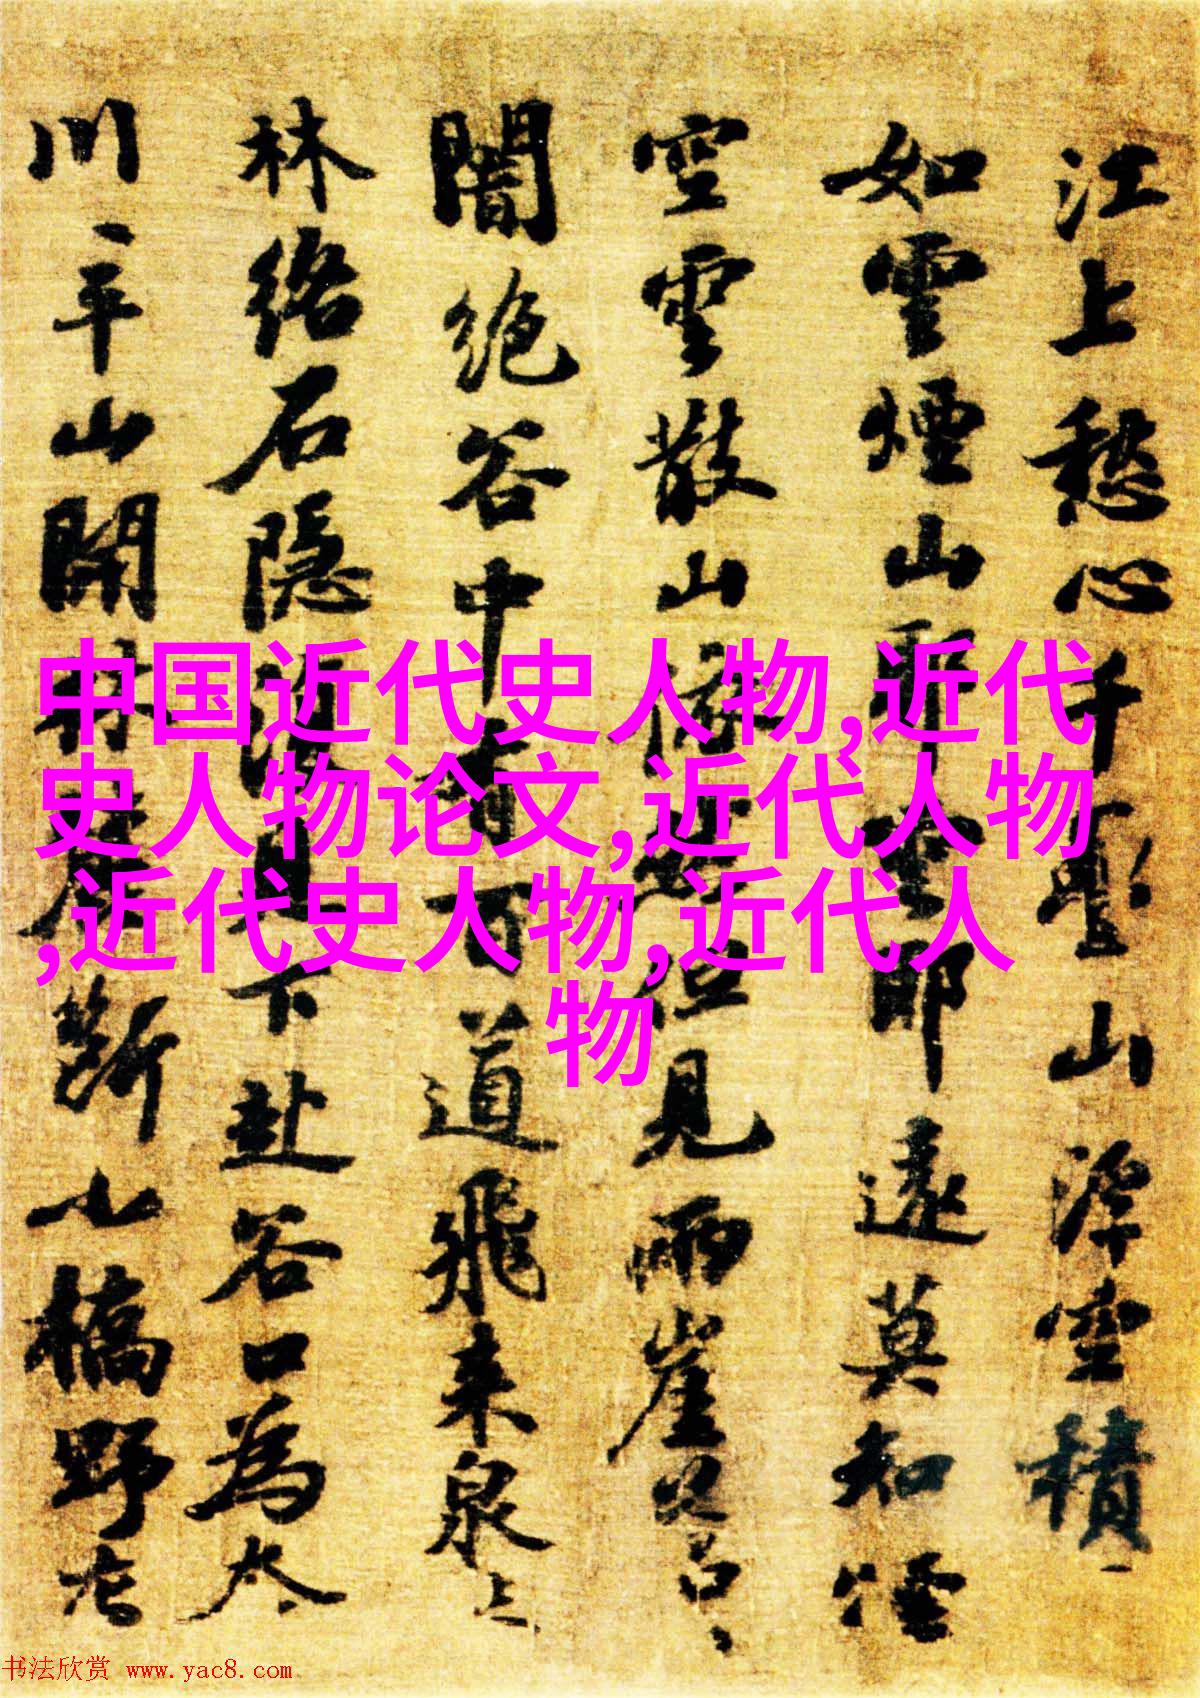 江上愁心千疊山浮空積
如雲煙山耶雲耶遠莫知煙
空雲散山依然但見兩崖蒼蒼
闇絕谷中有百道飛來泉
林絡石隱復見下赴谷口為奔
川川平山開林麓斷小橋野店
中国近代史人物,近代
史人物论文,近代人物
,近代史人物,近代人
物
书法欣赏 www.yac8.com